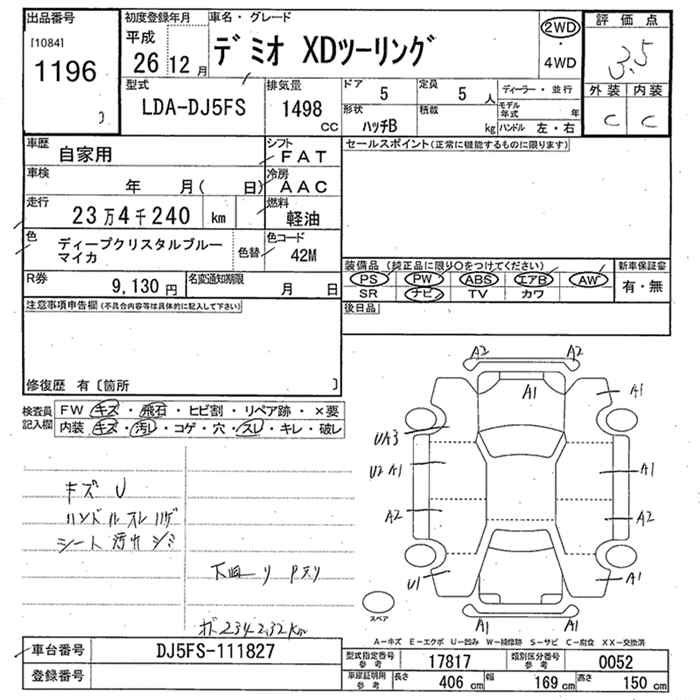 出品番号
[1084]
1196
初度登録年月
平成
26 12 月
車名・グレード
デミオ XDツーリング
2WD
・
4WD
評価点
3.5
外装 内装
C C
型式
LDA-DJ5FS
排気量
1498
CC
ドア
5
定員
5 人
形状
ハッチB
積載
kg
ディーラー・並行
モデル年式 年
ハンドル 左・右
車歴
自家用
シフト
FAT
車検
年 月( 日)
冷房
AAC
走行
23万4千240 km
燃料
軽油
色
ディープクリスタルブルー
マイカ
色替
色コード
42M
R券
9,130円
名変通知期限
月 日
セールスポイント(正常に機能するものに限ります)
装備品 (純正品に限り○をつけてください)
PS PW ABS エアB AW
SR ナビ TV カワ
新車保証書
有・無
後日品
注意事項申告欄(不具合内容等は具体的に記入して下さい)
修復歴 有〔箇所 〕
検査員
記入欄
FW キズ・飛石・ヒビ割・リペア跡・×要
内装 キズ・汚レ・コゲ・穴・スレ・キレ・破レ
キズ U
ハンドルスレ ハゲ
シート 汚れ シミ
下廻り Pタリ
ボ 234232km
A2 A2
A1
A1
UA3
U2 A1
A1
A2
A2
U1
A1
A1 A1
スペア
A−キズ E−エクボ U−凹み W−補修跡 S−サビ C−腐食 XX−交換済
車台番号
DJ5FS-111827
登録番号
型式指定番号
参考
17817
類別区分番号
参考
0052
車庫証明用
参考
長さ
406 cm
幅
169 cm
高さ
150 cm